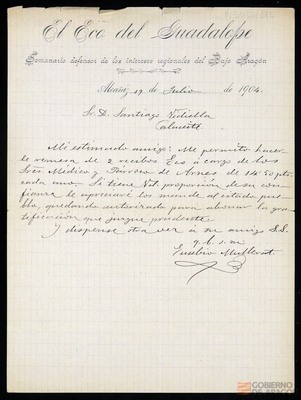 El Eco del Guadalope
Semanario defensor de los intereses regionales del Bajo Aragón
Alcañiz 19 de Julio de 1904.
Sr. D. Santiago Vidiella
Calaceite
Mi estimado amigo: Me permito hacer-
le remesa de 2 recibos Eco á cargo de los
Sres. Médico y Párroco de Arnes de 14'50 ptas
cada uno. Si tiene Vd. proporción de su con-
fianza le apreciaré los mande al citado pue-
blo, quedando autorizado para abonar la gra-
tificación que juzgue prudente
Y dispense otra vez á su amigo S.S.
q. b. s. m.
Eusebio
GOBIERNO
DE ARAGON